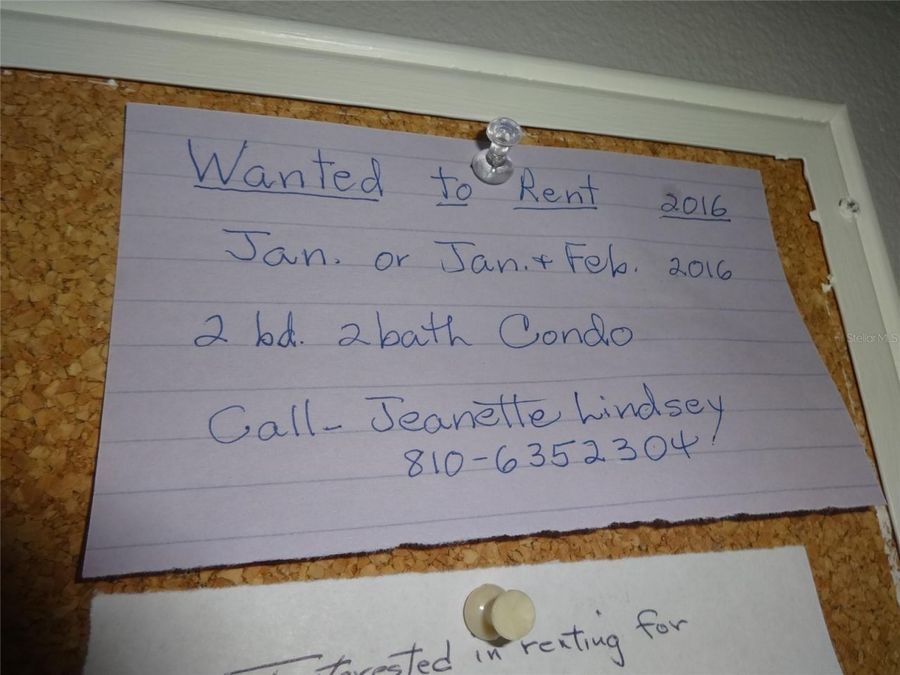 Wanted to Rent 2016
Jan. or Jan. + Feb. 2016
2 bd. 2 bath Condo
Call - Jeanette Lindsey
810-6352304
Interested in renting for
Stellar MLS